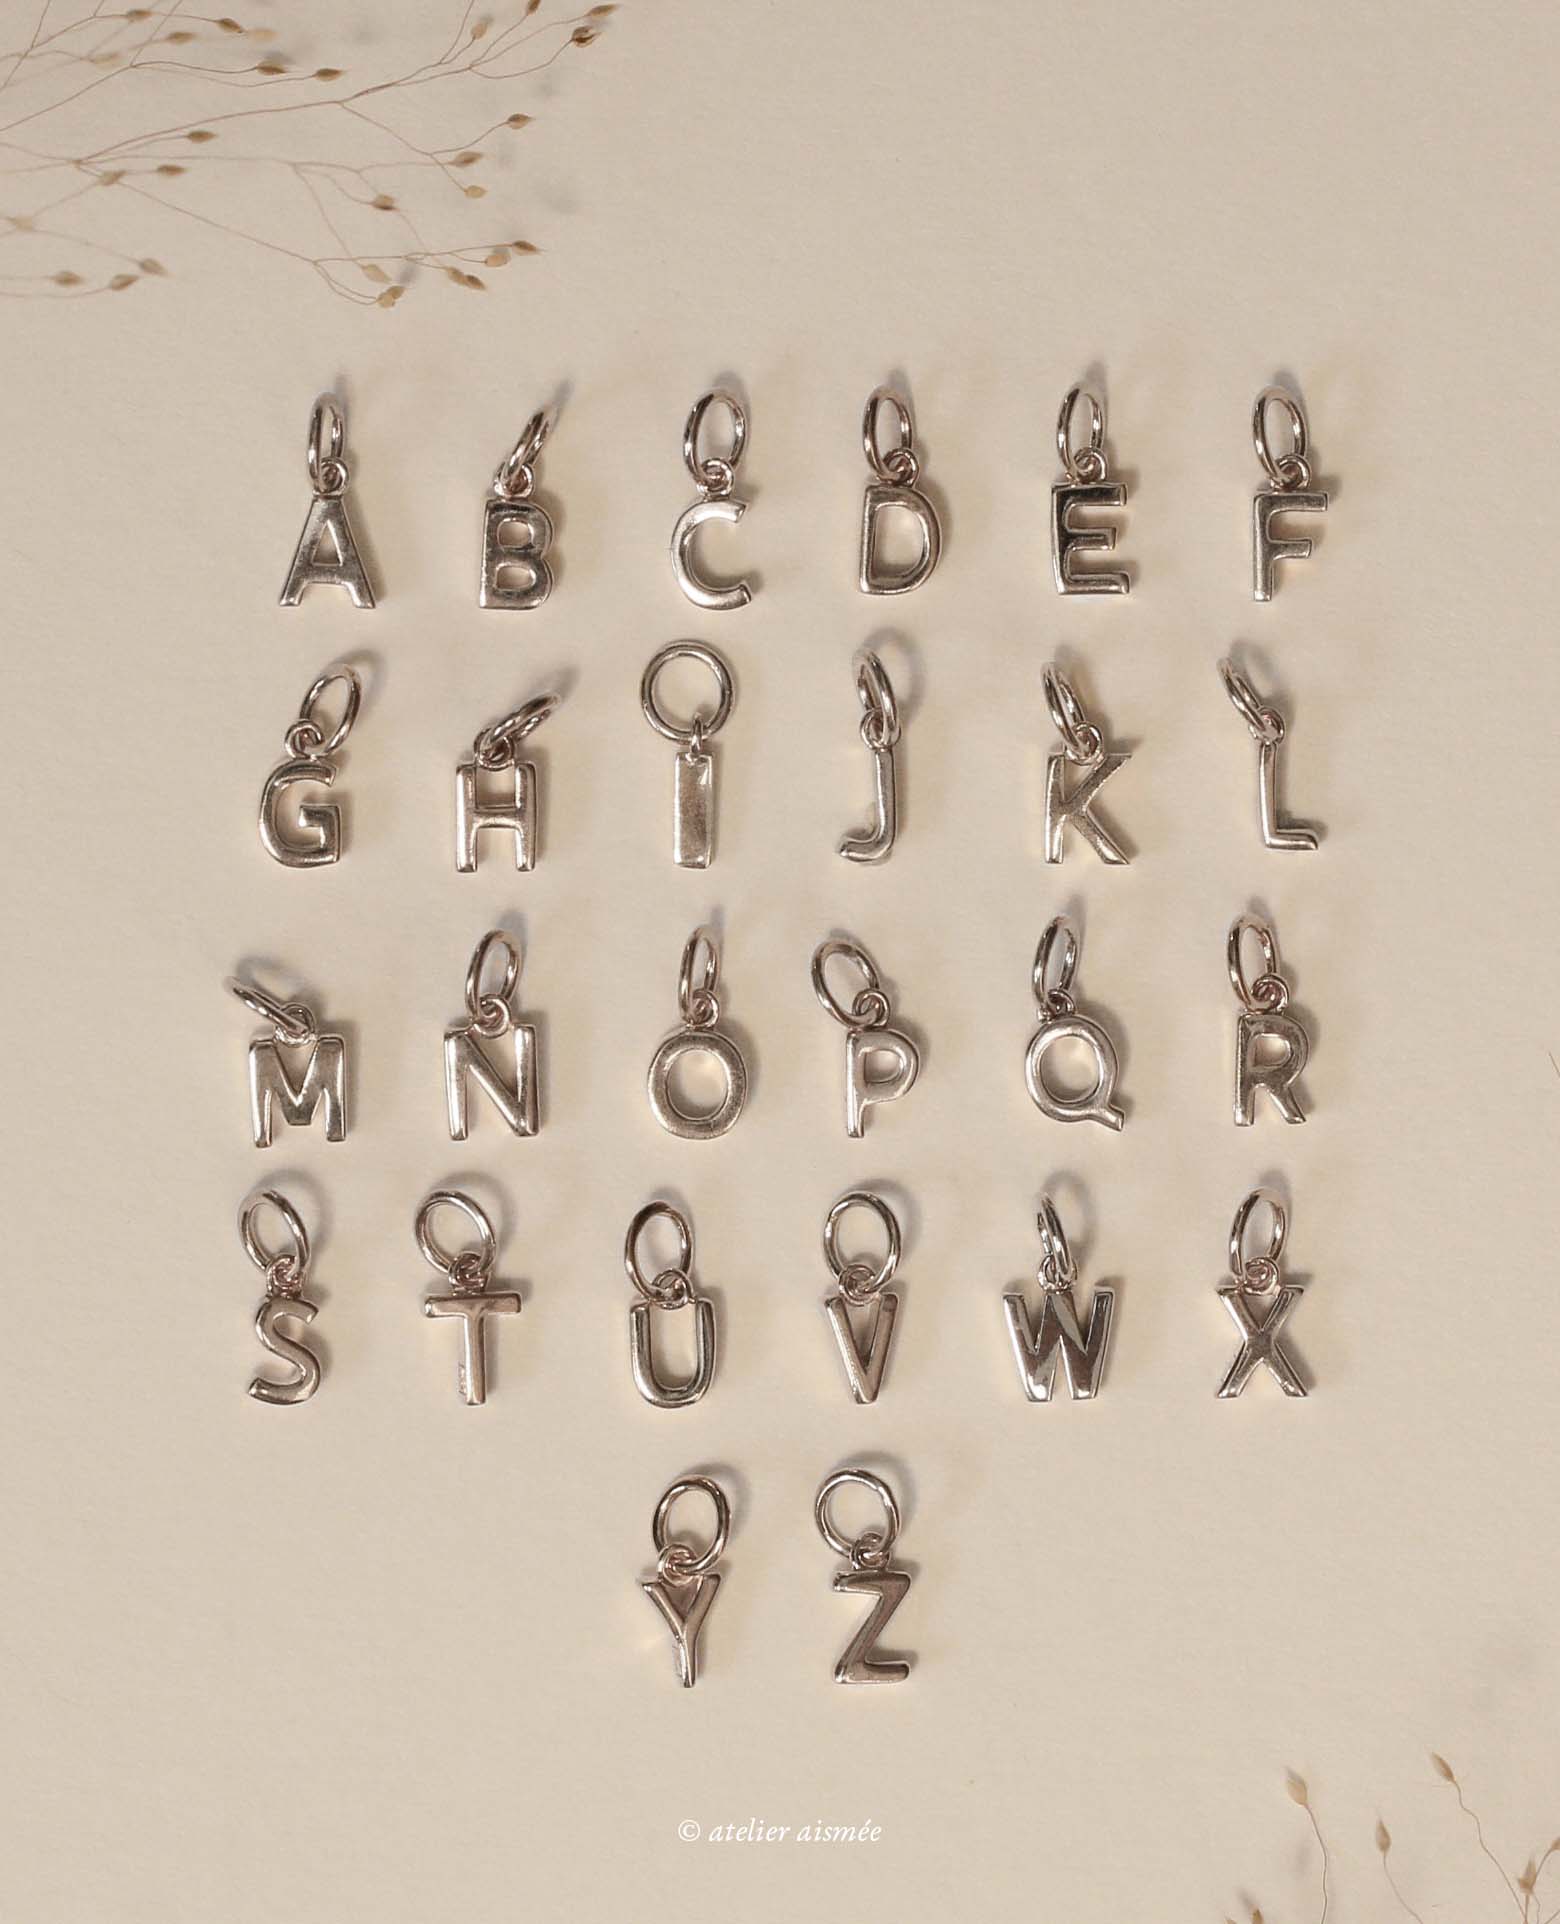 A B C D E F
G H I J K L
M N O P Q R
S T U V W X
Y Z
© atelier aismée